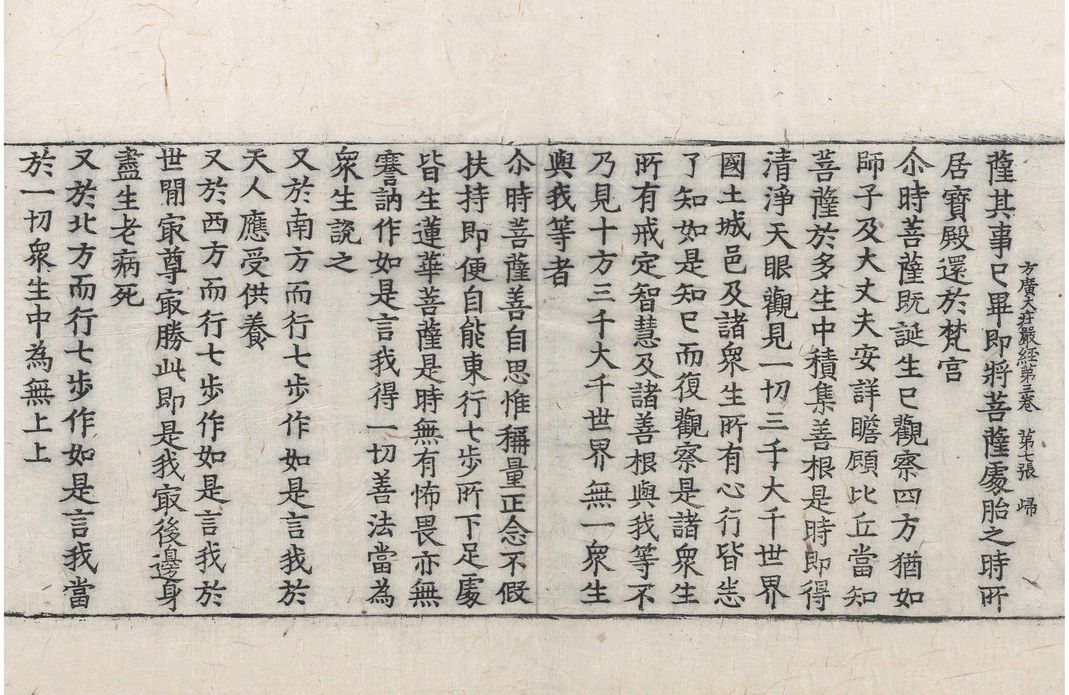 方廣大莊嚴經第三卷 第七張 歸
薩其事已畢即將菩薩處胎之時所
居寶殿還於梵宮
尒時菩薩旣誕生已觀察四方猶如
師子及大丈夫安詳瞻顧比丘當知
菩薩於多生中積集善根是時即得
清淨天眼觀見一切三千大千世界
國土城邑及諸衆生所有心行皆悉
了知如是知已而復觀察是諸衆生
所有戒定智慧及諸善根與我等不
乃見十方三千大千世界無一衆生
與我等者
尒時菩薩善自思惟稱量正念不假
扶持即便自能東行七步所下足處
皆生蓮華菩薩是時無有怖畏亦無
謇訥作如是言我得一切善法當為
衆生說之
又於南方而行七步作如是言我於
天人應受供養
又於西方而行七步作如是言我於
世閒㝡尊㝡勝此即是我㝡後邊身
盡生老病死
又於北方而行七步作如是言我當
於一切衆生中為無上上